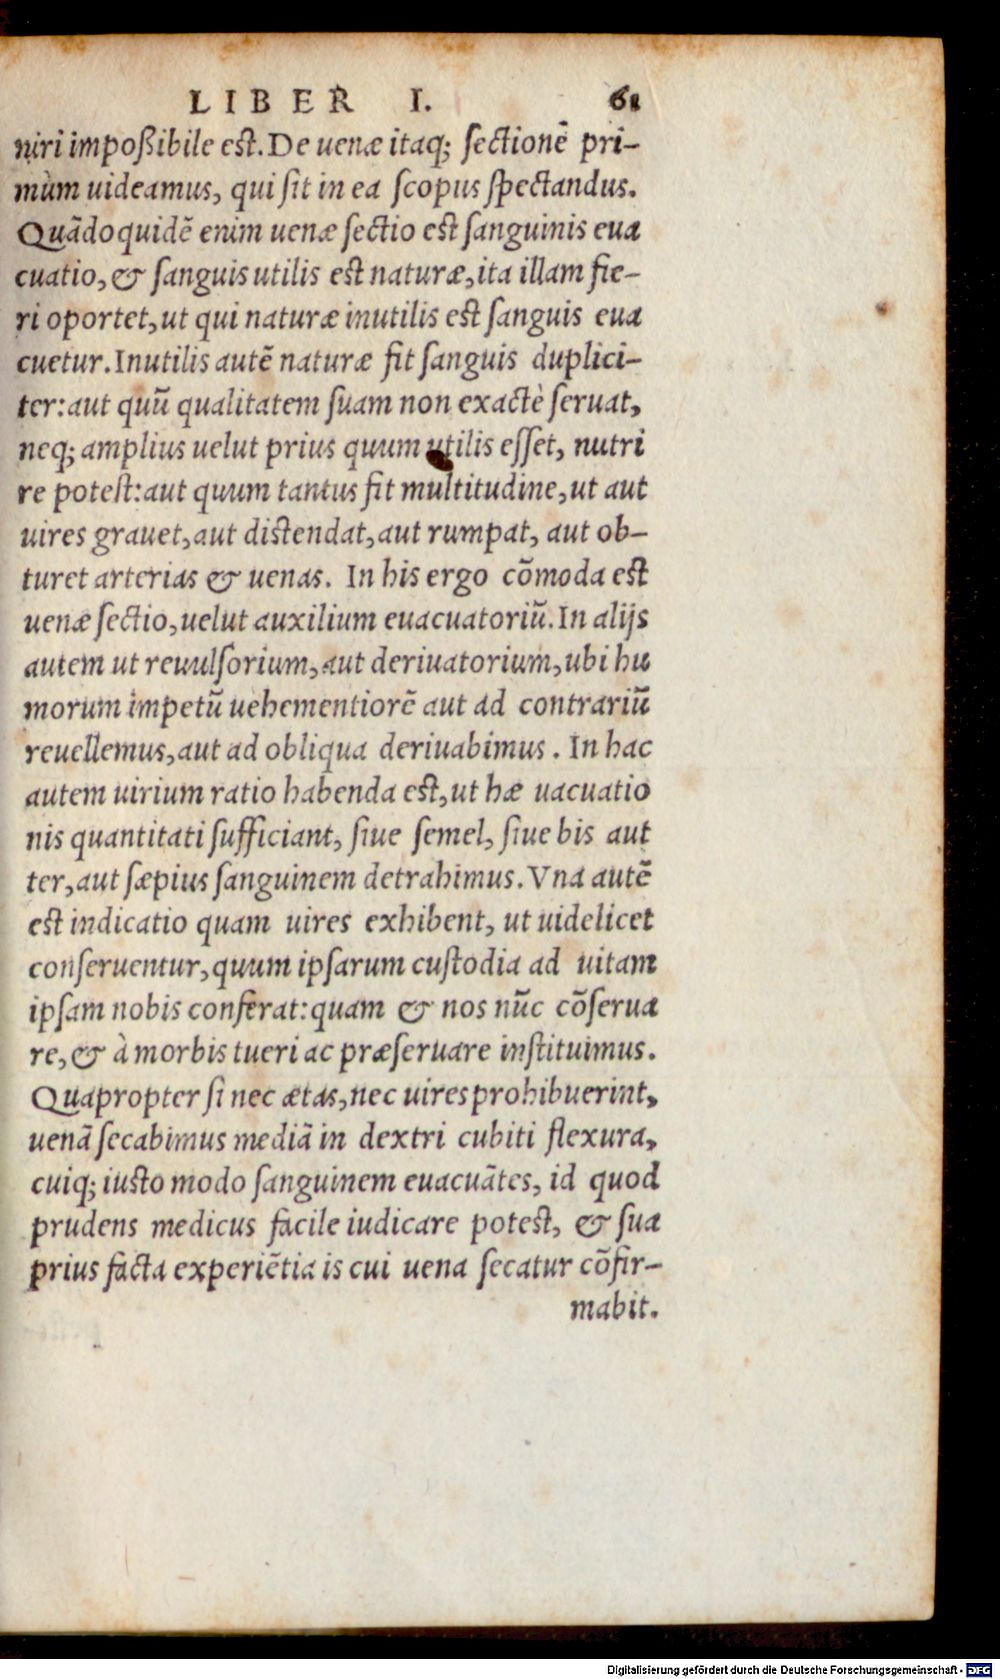 LIBER I. 61
niri impoßibile est. De uenæ itaq; sectionẽ pri-
mùm uideamus, qui sit in ea scopus spectandus.
Quãdoquidẽ enim uenæ sectio est sanguinis eua
cuatio, & sanguis utilis est naturæ, ita illam fie-
ri oportet, ut qui naturæ inutilis est sanguis eua
cuetur. Inutilis autẽ naturæ fit sanguis duplici-
ter: aut quũ qualitatem suam non exactè seruat,
neq; amplius uelut prius quum utilis esset, nutri
re potest: aut quum tantus fit multitudine, ut aut
uires grauet, aut distendat, aut rumpat, aut ob-
turet arterias & uenas. In his ergo cõmoda est
uenæ sectio, uelut auxilium euacuatoriũ. In alijs
autem ut reuulsorium, aut deriuatorium, ubi hu
morum impetũ uehementiorẽ aut ad contrariũ
reuellemus, aut ad obliqua deriuabimus. In hac
autem uirium ratio habenda est, ut hæ uacuatio
nis quantitati sufficiant, siue semel, siue bis aut
ter, aut sæpius sanguinem detrahimus. Vna autẽ
est indicatio quam uires exhibent, ut uidelicet
conseruentur, quum ipsarum custodia ad uitam
ipsam nobis conferat: quam & nos nũc cõserua
re, & à morbis tueri ac præseruare instituimus.
Quapropter si nec ætas, nec uires prohibuerint,
uenã secabimus mediã in dextri cubiti flexura,
cuiq; iusto modo sanguinem euacuãtes, id quod
prudens medicus facile iudicare potest, & sua
prius facta experiẽtia is cui uena secatur cõfir-
mabit.
Digitalisierung gefördert durch die Deutsche Forschungsgemeinschaft - DFG